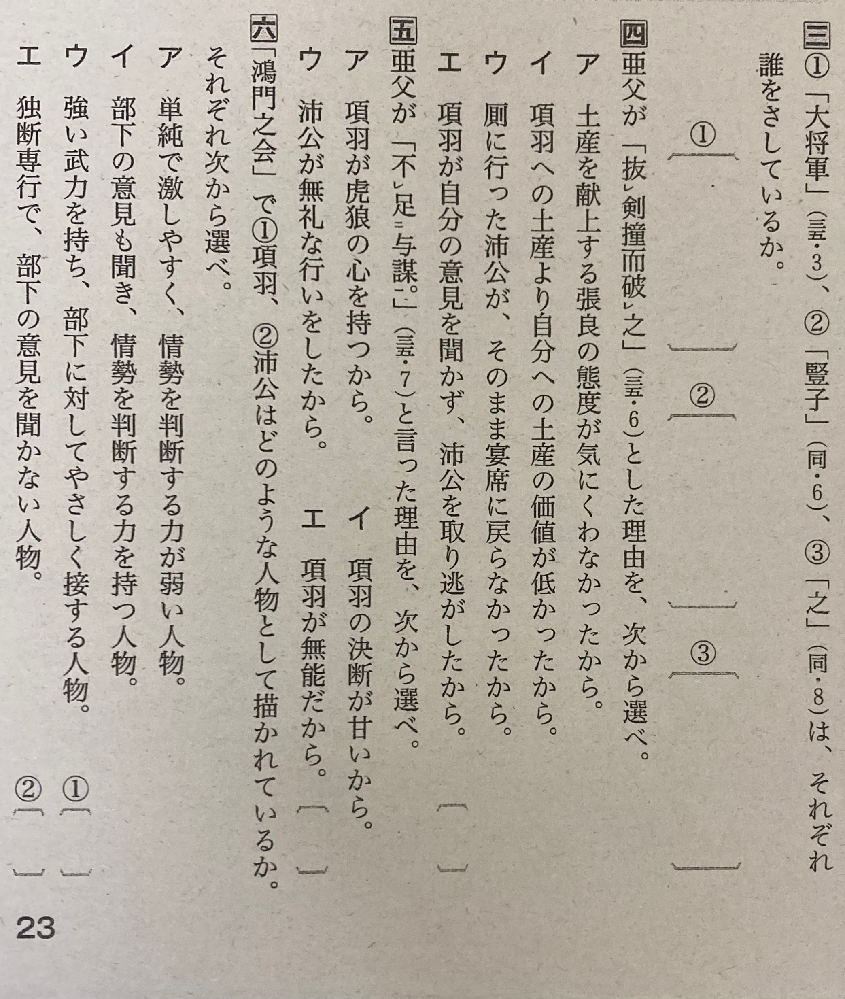 三 ①「大将軍」（三五・3）、②「豎子」（同・6）、③「之」（同・8）は、それぞれ
誰をさしているか。
① ② ③
四 亜父が「抜レ剣撞而破レ之」（三五・6）とした理由を、次から選べ。
ア 土産を献上する張良の態度が気にくわなかったから。
イ 項羽への土産より自分への土産の価値が低かったから。
ウ 厠に行った沛公が、そのまま宴席に戻らなかったから。
エ 項羽が自分の意見を聞かず、沛公を取り逃がしたから。
五 亜父が「不レ足二与謀。」（三五・7）と言った理由を、次から選べ。
ア 項羽が虎狼の心を持つから。 イ 項羽の決断が甘いから。
ウ 沛公が無礼な行いをしたから。 エ 項羽が無能だから。
六 「鴻門之会」で①項羽、②沛公はどのような人物として描かれているか。
それぞれ次から選べ。
ア 単純で激しやすく、情勢を判断する力が弱い人物。
イ 部下の意見も聞き、情勢を判断する力を持つ人物。
ウ 強い武力を持ち、部下に対してやさしく接する人物。 ①
エ 独断専行で、部下の意見を聞かない人物。 ②
23